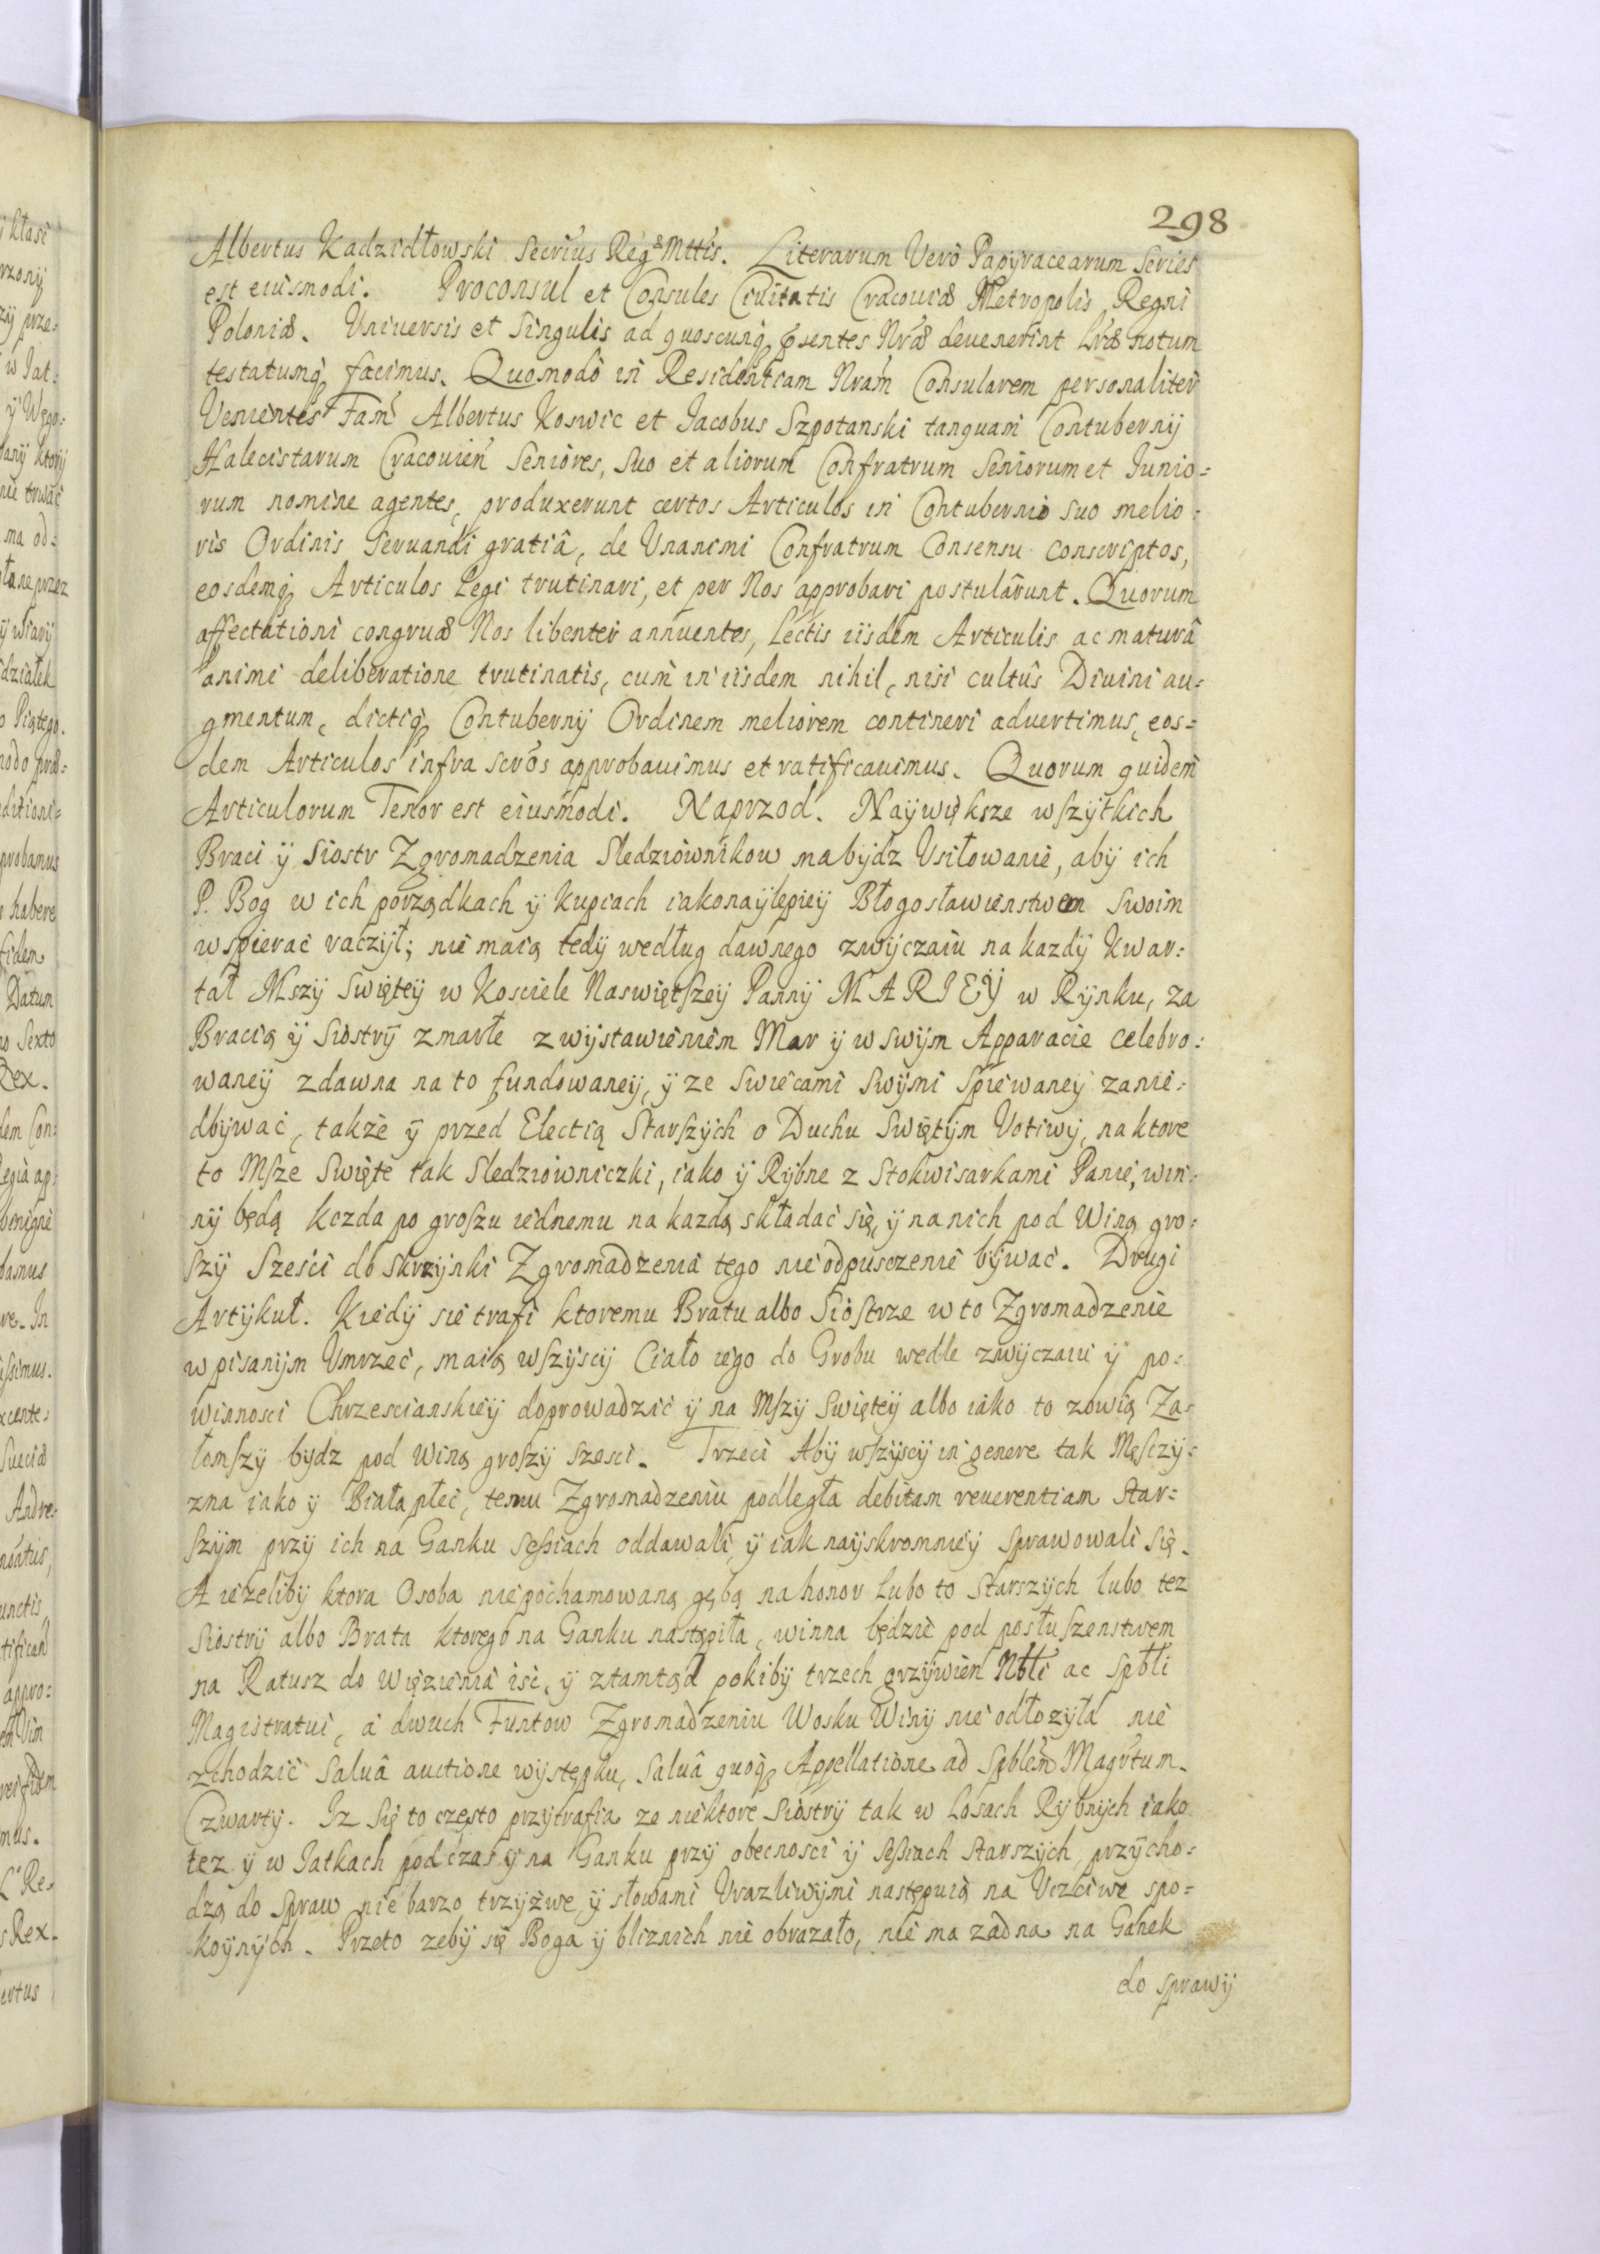 298
Albertus Kadzidłowski Secri̇us Reg& Mttis. Literarum Vero Papyracearum Series
est eiusmodi. Proconsul et Consules Ciuitatis Cracouiæ Metropolis Regni
Poloniæ. Vniuersis et Singulis ad quoscunq; pṡentes Nræ deuenerint Lræ notum
testatumq; facimus. Quomodo in Residentiam Nram Consularem personaliter
Venientes Fam̃ Albertus Koswic et Jacobus Szpotanski tanquam Contubernij
Halecistarum Cracouień Seniores, Suo et aliorum Confratrum Seniorum et Junio=
rum nomine agentes, produxerunt certos Articulos in Contubernio suo melio=
ris Ordinis Seruandi gratiâ, de Vnanimi Confratrum Consensu conscriptos,
eosdemq; Articulos Legi trutinari, et per Nos approbari postulârunt. Quorum
affectationi congruæ Nos libenter annuentes, Lectis iisdem Articulis ac maturâ
animi deliberatione trutinatis, cum in iisdem nihil, nisi cultûs Diuini au=
gmentum, dictiq; Contubernij Ordinem meliorem contineri aduertimus, eos=
dem Articulos infra scr̃os approbauimus et ratificauimus. Quorum quidem
Articulorum Tenor est eiusmodi. Naprzod. Naywiększe wszytkich
Braci ÿ Siostr Zgromadzenia Sledziownikow ma bydz Vsiłowanie, abÿ ich
P. Bog w ich porządkach ÿ kupiach iakonaylepiey Błogosławienstwem Swoim
wspierać raczÿł; nie maią tedÿ według dawnego zwyczaiu na kazdÿ Kwar=
tał Mszÿ Swiętey w Kosciele Naswiętszeÿ Pannÿ MARIEÿ w Rÿnku, za
Bracią ÿ Siostrÿ zmarłe z wystawieniem Mar ÿ w swÿm Apparacie celebro=
waneÿ zdawna na to fundowaneÿ, ÿ ze swiecami Swÿmi Spiewaneÿ zanie=
dbywać, także ÿ przed Electią Starszych o Duchu Swiętym Votiwÿ, na ktore
to Msze Swięte tak Sledziowniczki, iako ÿ Rÿbne z Stokwisarkami Panie, win=
nÿ będą kczda po groszu iednemu na kazdą składać się, ÿ na nich pod Winą gro=
szÿ Szesci do Skrzynki Zgromadzenia tego nieodpusczenie bywać. Drugi
Artÿkuł. Kiedÿ sie trafi ktoremu Bratu albo Siostrze w to Zgromadzenie
wpisanÿm Vmrzeć, maią wszyscÿ Ciało iego do Grobu wedle zwyczaiu ÿ po=
winnosci Chrzescianskieÿ doprowadzić ÿ na Mszÿ Swiętey albo iako to zowią Za=
łomszÿ bydz pod Winą groszÿ szesci. Trzeci Abÿ wszyscÿ in genere tak Męsczÿ=
zna iako ÿ Biała płeć, temu Zgromadzeniu podległa debitam reuerentiam Star=
szÿm przÿ ich na Ganku Sessiach oddawali, ÿ iak naÿskromnieÿ Sprawowali Się.
A ieżelibÿ ktora Osoba niepochamowaną gębą na honor Lubo to Starszÿch lubo tez
Siostrÿ albo Brata ktorego na Ganku nastąpiła, winna będzie pod posłuszenstwem
na Ratusz do Więzienia isc, ÿ ztamtąd pokibÿ trzech grzÿwien Nbłi ac Spbłi
Magistratui, a dwuch Funtow Zgromadzeniu Wosku Winÿ nie odłozÿła nie
zchodzić Saluâ auctione występku, Saluâ quoq; Appellatione ad Spblem Magr̃tum.
Czwartÿ. Iz się to często przytrafia ze niektore Siostrÿ tak w Losach Rÿbnÿch iako
tez ÿ w Jatkach podczas ÿ na Ganku przÿ obecnosci ÿ Sessiach Starszÿch, przÿcho=
dzą do Spraw nie barzo trzÿżwe, ÿ słowami Vrazliwÿmi następuią na Vczciwe spo=
koÿnÿch. Przeto zebÿ się Boga ÿ bliznich nie obrazało, nie ma zadna na Ganek
do sprawÿ